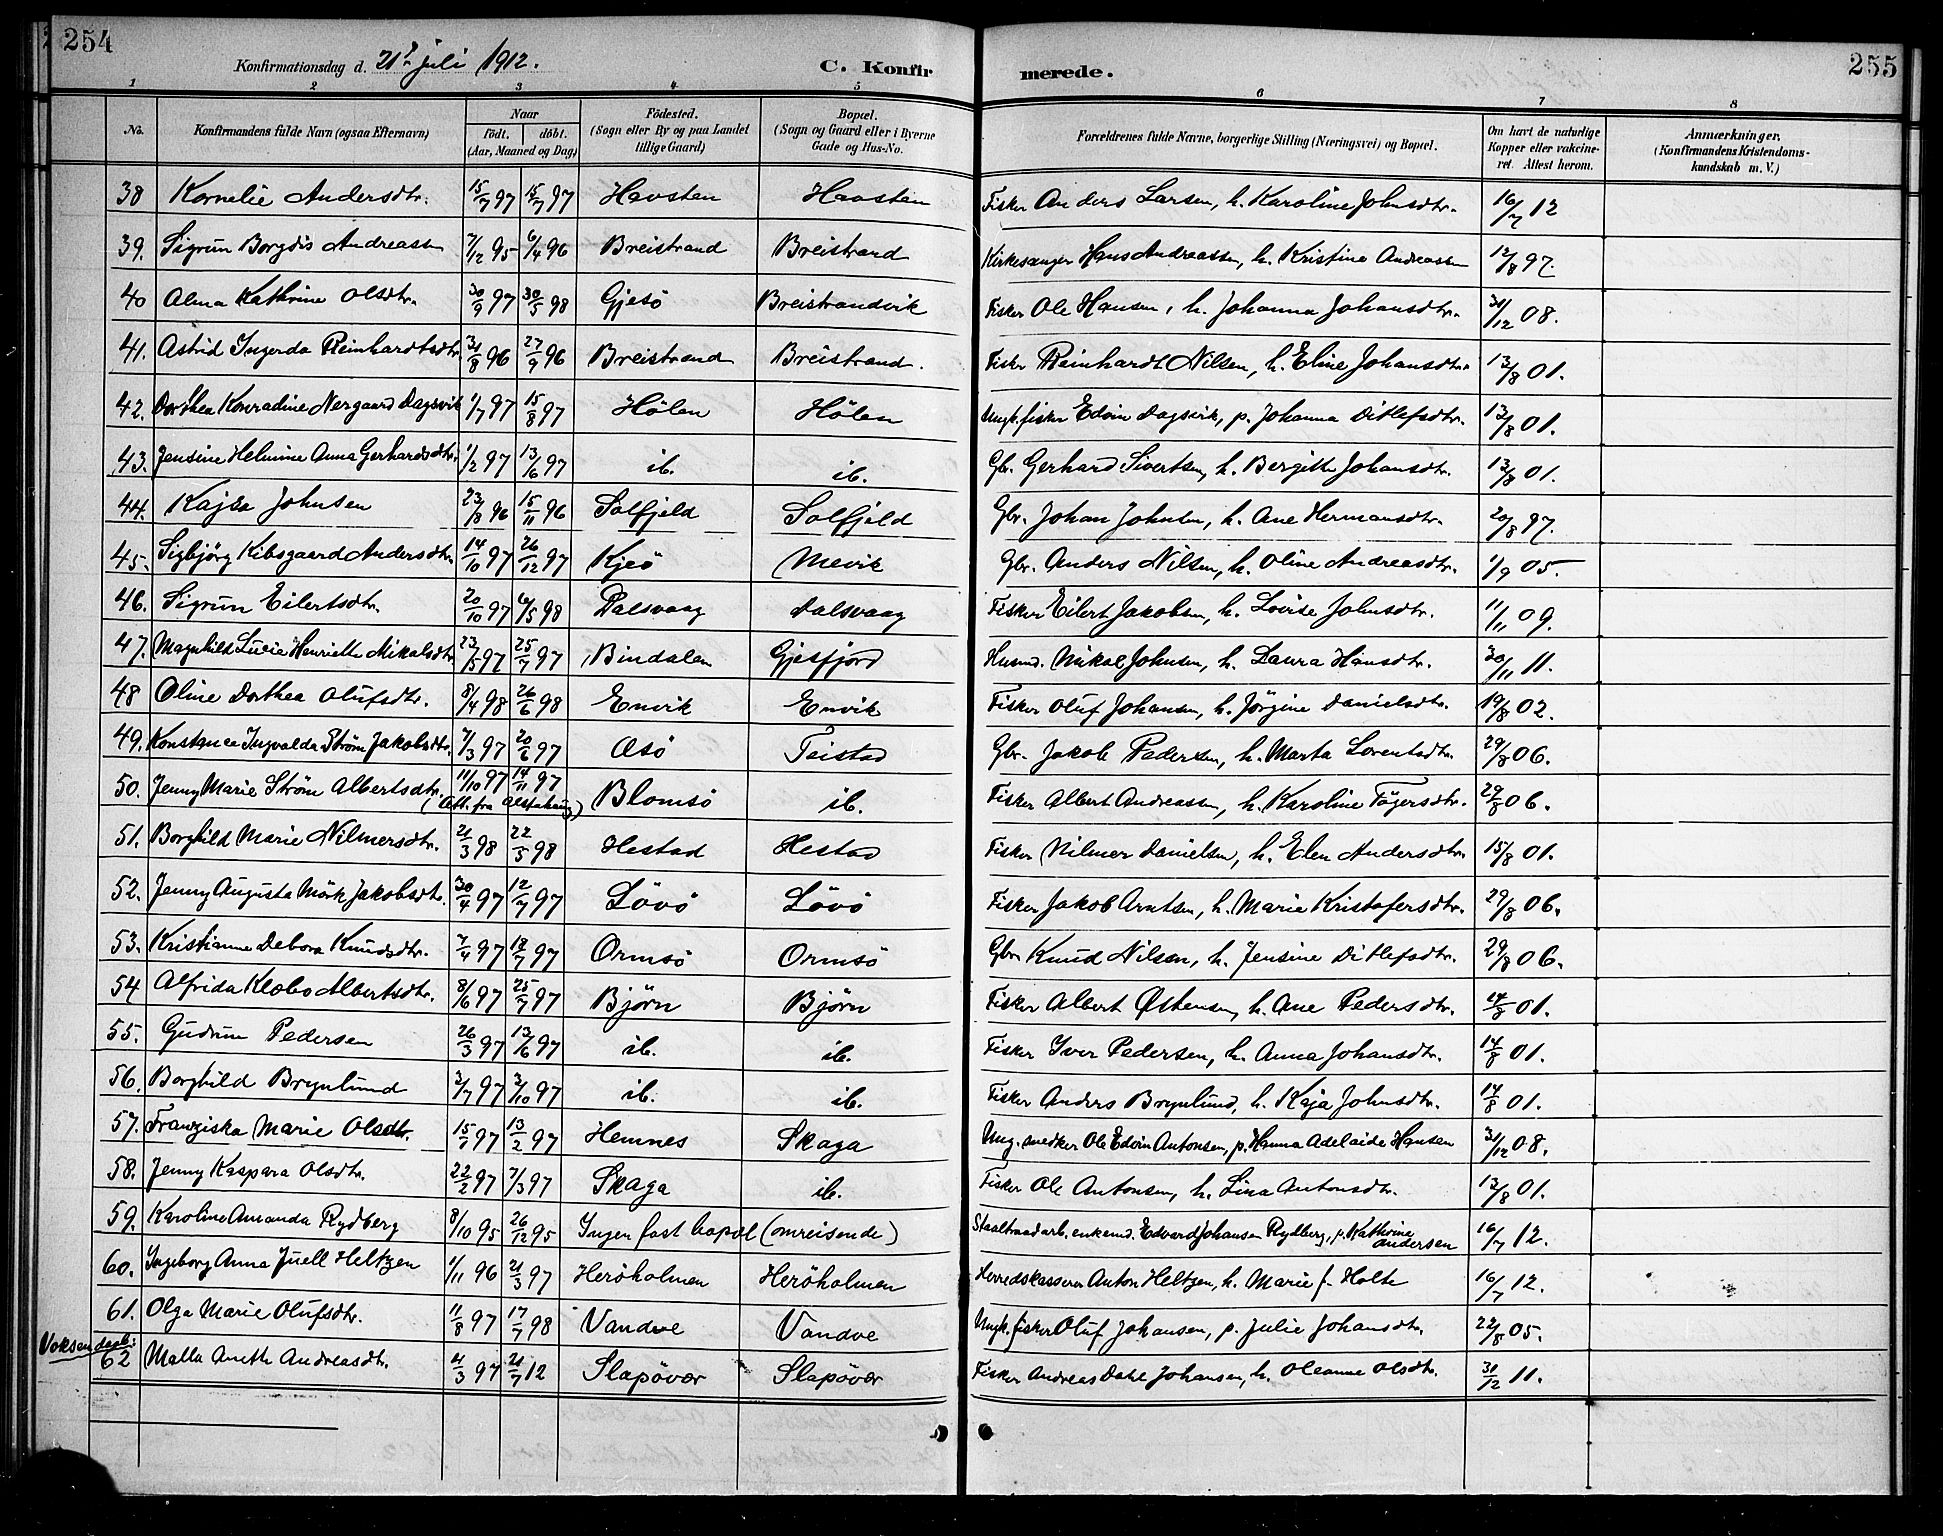 254
Konfirmationsdag d. 21de juli 1912.
C. Konfir
merede.
255
1 2 3 4 5 6 7 8
No. Konfirmandens fulde Navn (ogsaa Efternavn) Naar født. døbt. (Aar, Maaned og Dag) Fødested. (Sogn eller By og paa Landet tillige Gaard) Bopæl. (Sogn og Gaard eller i Byerne Gade og Hus-No. Forældrenes fulde Navne, borgerlige Stilling (Næringsvei) og Bopæl. Om havt de naturlige Kopper eller vakcineret. Attest herom. Anmærkninger. (Konfirmandens Kristendomskundskab m. V.)
38 Kornelie Andersdtr. 15/7 97 15/7 97 Havsten Havsten Fisker Anders Larsen, h. Karoline Johnsdtr. 16/7 12
39. Sigrun Borgdis Andreassen 7/12 95 6/4 96 Breistrand Breistrand Kirkesanger Hans Andreassen, h. Kristine Andreassen 12/8 97.
40 Alma Kathrine Olsdtr. 30/9 97 30/5 98 Gjesö Breistrandvik Fisker Ole Hansen, h. Johanna Johansdtr. 31/12 08.
41. Astrid Ingerda Reinhardtsdtr. 31/8 96 27/9 96 Breistrand Breistrand. Fisker Reinhardt Nilsen, h. Eline Johansdtr. 13/8 01.
42. Dorthea Konradine Nergaard Dagsvik 1/7 97 15/8 97 Hölen Hölen Ungk. fisker Edvin Dagsvik, p. Johanna Ditlefsdtr. 13/8 01.
43. Jensine Helmine Anna Gerhardsdtr. 1/2 97 13/6 97 ib. ib. Gbr. Gerhard Sivertsen, h. Bergitte Johansdtr. 13/8 01.
44. Kajsa Johnsen 23/8 96 15/11 96 Solfjeld Solfjeld Gbr. Johan Johnsen, h. Ane Hermansdtr. 20/8 97.
45. Sigbjörg Kibsgaard Andersdtr. 14/10 97 26/12 97 Kjeö Mevik Gbr. Anders Nilsen, h. Oline Andreasdtr. 1/9 05.
46. Sigrun Eilertsdtr. 20/10 97 6/5 98 Dalsvaag Dalsvaag Fisker Eilert Jakobsen, h. Lovise Johnsdtr. 11/11 09.
47. Magnhild Lucia Henriette Mikalsdtr. 23/5 97 25/7 97 Bindalen Gjesfjord Husmd. Mikal Johnsen, h. Laura Hansdtr. 30/11 11.
48 Oline Dorthea Olufsdtr. 8/4 98 26/6 98 Envik Envik Fisker Oluf Johansen, h. Jörgine Danielsdtr. 19/8 02.
49. Konstance Ingvalda Ström Jakobsdtr. 7/3 97 20/6 97 Asö Teistad Gbr. Jakob Pedersen, h. Marta Lorentsdtr. 29/8 06.
50. Jenny Marie Ström Albertsdtr. 11/10 97 14/11 97 Blomsö ib. Fisker Albert Andreassen, h. Karoline Tögersdtr. 29/8 06.
(Att. fra Alstahaug)
51. Borghild Marie Nilmersdtr. 21/3 98 22/5 98 Hestad Hestad Fisker Nilmer Danielsen, h. Elen Andersdtr. 15/8 01.
52. Jenny Augusta Mörk Jakobsdtr. 30/4 97 12/7 97 Lövö Lövö Fisker Jakob Arntsen, h. Marie Kristofersdtr. 29/8 06.
53. Kristianne Debora Knudsdtr. 7/4 97 18/7 97 Ormsö Ormsö Gbr Knud Nilsen, h. Jensine Ditlefsdtr. 29/8 06.
54 Alfrida Klæbo Albertsdtr. 8/6 97 25/7 97 Björn Björn Fisker Albert Østensen, h. Ane Pedersdtr. 14/8 01.
55. Gudrun Pedersen 26/3 97 13/6 97 ib. ib. Fisker Iver Pedersen, h. Anna Johansdtr. 14/8 01.
56. Borghild Brynlund 3/7 97 3/10 97 ib. ib. Fisker Anders Brynlund, h. Kaja Johnsdtr. 14/8 01.
57. Franziska Marie Olsdtr. 15/1 97 13/2 97 Hemnes Skaga Ung. snedker Ole Edvin Antonsen, p. Hanna Adelaide Hansen 31/12 08.
58. Jenny Kaspara Olsdtr. 22/2 97 7/3 97 Skaga ib. Fisker Ole Antonsen, h. Lina Antonsdtr. 13/8 01.
59. Karoline Amanda Rydberg 8/10 95 26/12 95 Ingen fast bopæl (omreisende) Staaltraadarb. enkemd. Edvard Johansen Rydberg, p. Kathrine Andersen 16/7 12.
60. Ingeborg Anna Juell Heltzen 1/11 96 21/3 97 Heröholmen Heröholmen Herredskasserer Anton Heltzen, h. Marie f. Holte 16/7 12.
61. Olga Marie Olufsdtr. 11/8 97 17/7 98 Vandve Vandve Ungk. fisker Oluf Johansen, p. Julie Johansdtr. 22/8 05.
Voksendøbt:
62 Malla Anette Andreasdtr. 4/3 97 21/7 12 Slapövær Slapövær Fisker Andreas Dahl Johansen, h. Oleanne Olsdtr. 31/12 11.